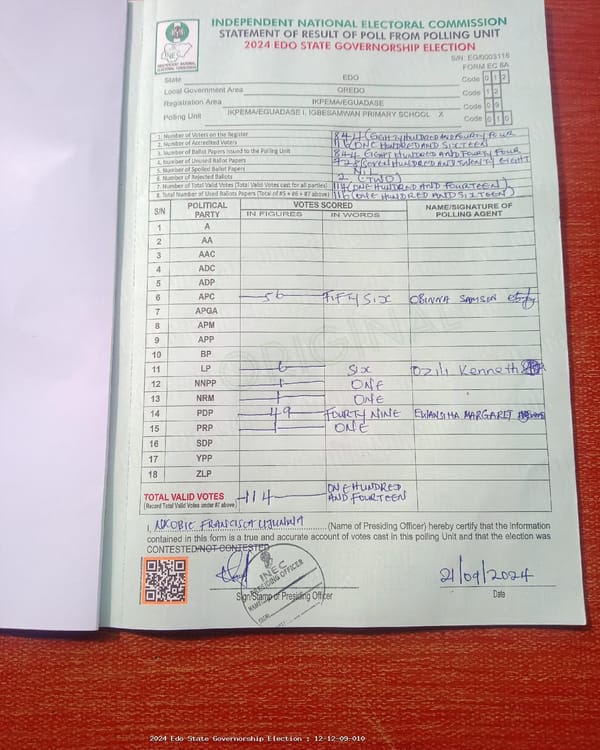 INDEPENDENT NATIONAL ELECTORAL COMMISSION
STATEMENT OF RESULT OF POLL FROM POLLING UNIT
2024 EDO STATE GOVERNORSHIP ELECTION
S/N: EG/0003118
FORM EC 8A
INDEPENDENT NATIONAL ELECTORAL COMMISSION
State EDO Code 0 1 2
Local Government Area OREDO Code 1 2
Registration Area IKPEMA/EGUADASE Code 0 9
Polling Unit IKPEMA/EGUADASE I, IGBESAMWAN PRIMARY SCHOOL X Code 0 1 0
1. Number of Voters on the Register 844 (EIGHTY HUNDRED AND FOURTY FOUR
2. Number of Accredited Voters 116 (ONE HUNDRED AND SIXTEEN)
3. Number of Ballot Papers Issued to the Polling Unit 844 (EIGHT HUNDRED AND FOURTY FOUR
4. Number of Unused Ballot Papers 728 (SEVEN HUNDRED AND TWENTY EIGHT
5. Number of Spoiled Ballot Papers NIL
6. Number of Rejected Ballots 2 (TWO)
7. Number of Total Valid Votes (Total Valid Votes cast for all parties) 114 (ONE HUNDRED AND FOURTEEN)
8. Total Number of Used Ballots Papers (Total of #5 + #6 + #7 above) 116 (ONE HUNDRED AND SIXTEEN)
S/N POLITICAL PARTY VOTES SCORED NAME/SIGNATURE OF POLLING AGENT
IN FIGURES IN WORDS
1 A
2 AA
3 AAC
4 ADC
5 ADP
6 APC 56 FIFTY SIX OBINNA SAMSON
7 APGA
8 APM
9 APP
10 BP
11 LP 6 SIX Ozili Kenneth
12 NNPP 1 ONE
13 NRM 1 ONE
14 PDP 49 FOURTY NINE EWANSIHA MARGARET
15 PRP 1 ONE
16 SDP
17 YPP
18 ZLP
TOTAL VALID VOTES 114 ONE HUNDRED AND FOURTEEN
(Record Total Valid Votes under #7 above)
ORIGINAL
I, NKOBIE FRANCISCA UJUNWA (Name of Presiding Officer) hereby certify that the Information
contained in this form is a true and accurate account of votes cast in this polling Unit and that the election was
CONTESTED/NOT CONTESTED
INEC
PRESIDING OFFICER
21/09/2024
Sign/Stamp of Presiding Officer
Date
2024 Edo State Governorship Election : 12-12-09-010